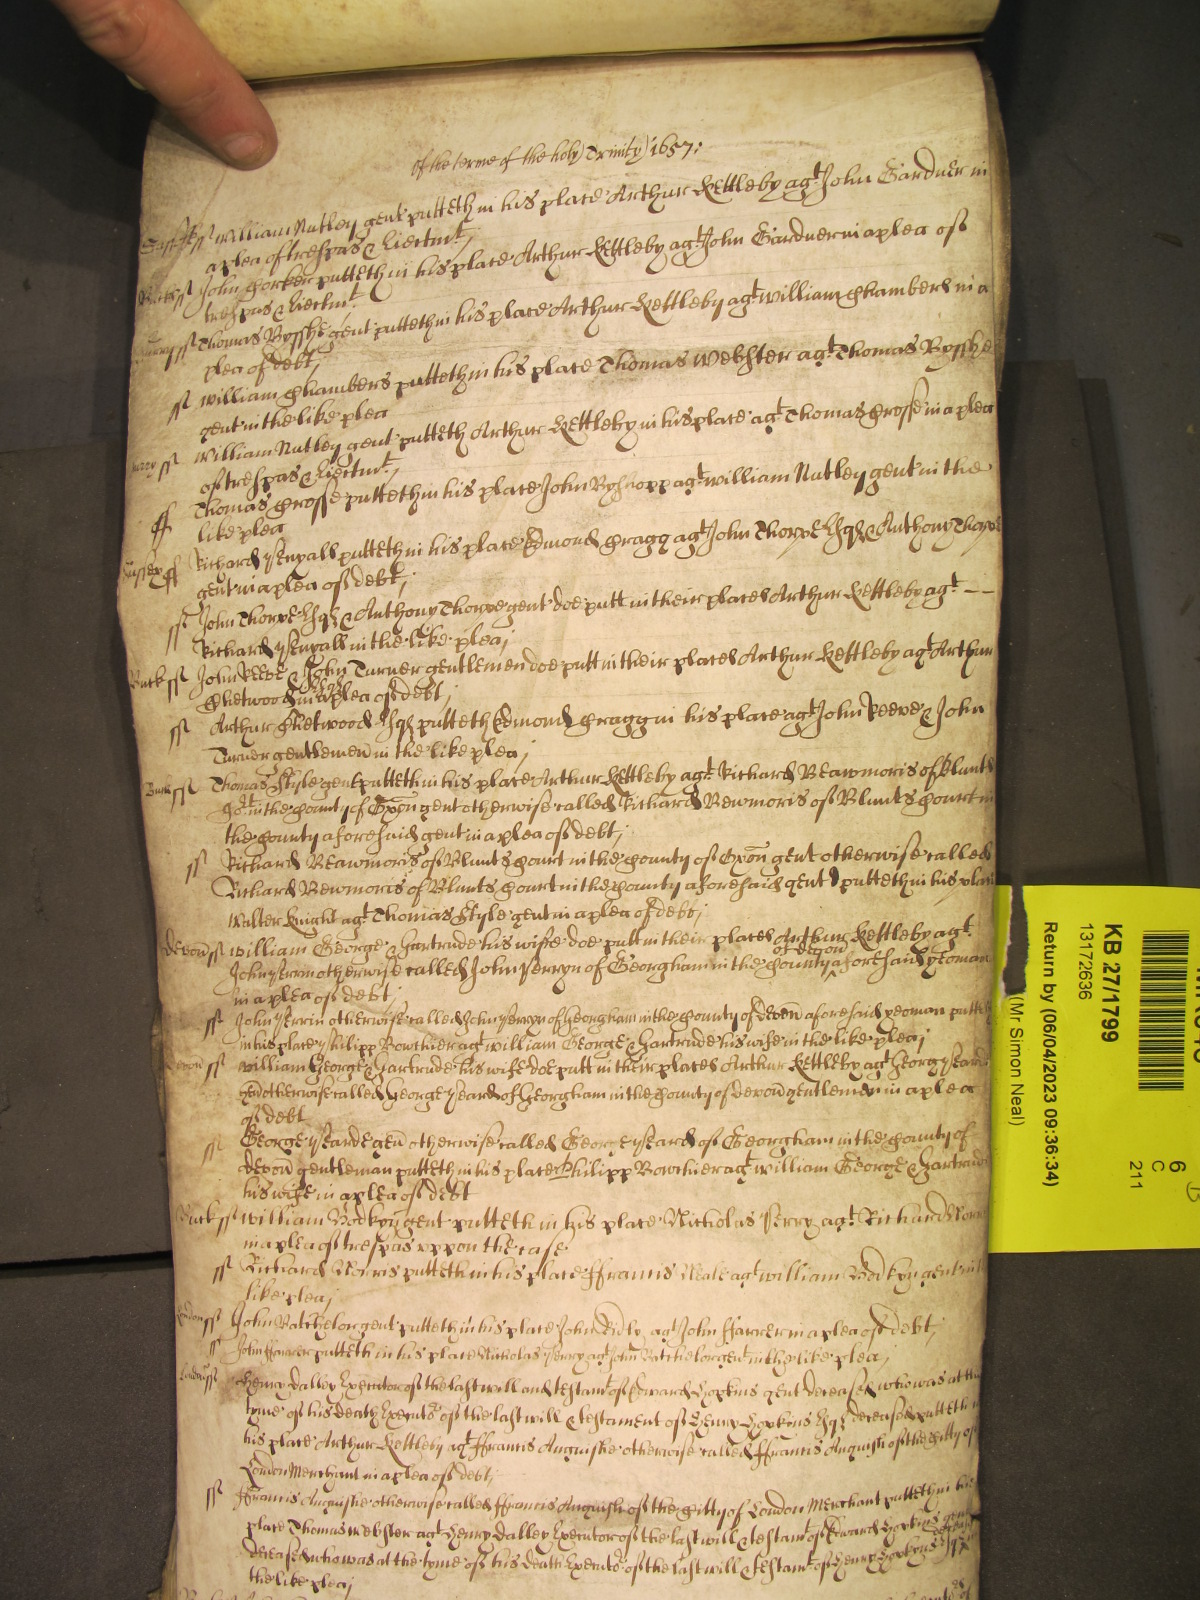 Of the terme of the holy Trinity 1657:
ss William Nutley gent putteth in his place Arthur Kettleby agt John Gardner in
a plea of trespas & Eiectmt,
Bucks ss John putteth in his place Arthur Kettleby agt John Gardner in a plea of
trespas & Eiectmt
Surrey ss Thomas Bysshe gent putteth in his place Arthur Kettleby agt William Chambers in a
plea of debt,
ss William Chambers putteth in his place Thomas Webster agt Thomas Bysshe
gent in the like plea
Surrey ss William Nutley gent putteth Arthur Kettleby in his place agt Thomas Crosse in a plea
of trespas & Eiectmt,
ss Thomas Crosse putteth in his place John Byshopp agt William Nutley gent in the
like plea
Sussex ss Richard putteth in his place Edmond Cragg agt John Thorpe Esqr & Anthony Thorpe
gent in a plea of debt,
ss John Thorpe Esqr & Anthony Thorpe gent doe putt in their places Arthur Kettleby agt —
Richard in the like plea,
Buck ss John Reeve & John Turner gentlemen doe putt in their places Arthur Kettleby agt Arthur
Chetwood in a plea of debt,
ss Arthur Chetwood Esqr putteth Edmond Cragg in his place agt John Reeve & John
Turner gentlemen in the like plea,
Buck ss Thomas Style gent putteth in his place Arthur Kettleby agt Richard Beawmoris of Blunts
in the County of Oxon gent otherwise called Richard Bewmoris of Blunts Court in
the County aforesaid gent in a plea of debt,
ss Richard Beawmoris of Blunts Court in the County of Oxon gent otherwise called
Richard Bewmoris of Blunts Court in the County aforesaid gent putteth in his place
Walter Knight agt Thomas Style gent in a plea of debt,
Devon ss William George & Gartrude his wife doe putt in their places Arthur Kettleby agt
of Devon
John otherwise called John Perryn of Georgham in the County aforesaid yeoman
in a plea of debt,
ss John Perrin otherwise called John Perryn of Georgham in the County of Devon aforesaid yeoman putteth
in his place Philipp Bowthier agt William George & Gartrude his wife in the like plea,
Devon ss William George & Gartrude his wife doe putt in their places Arthur Kettleby agt George
gen otherwise called George of Georgham in the County of Devon gentleman in a plea
of debt
ss George gen otherwise called George of Georgham in the County of
Devon gentleman putteth in his place Philipp Bowthier agt William George & Gartrude
his wife in a plea of debt
Buck ss William gent putteth in his place Nicholas Perry agt Richard Norris
in a plea of trespas uppon the case
ss Richard Norris putteth in his place ffrancis Neale agt William gent in the
like plea,
London ss John Batchelor gent putteth in his place John agt John ffarrer in a plea of debt,
ss John ffarrer putteth in his place Nicholas Perry agt John Batchelor gent in the like plea,
London ss Henry Dalley Executor of the last will and testamt of Edward Hopkins gent deceased who was at the
tyme of his death Executor of the last will & testament of Henry Hopkins Esqr deceased putteth in
his place Arthur Kettleby agt ffrancis Anguishe otherwise called ffrancis Anguish of the Citty of
London Merchant in a plea of debt,
ss ffrancis Anguishe otherwise called ffrancis Anguish of the Citty of London Merchant putteth in his
place Thomas Webster agt Henry Dalley Executor of the last will & testamt of Edward Hopkins gent
deceased who was at the tyme of his death Executor of the last will & testamt of Henry Hopkins Esqr deceased in
the like plea,
KB 27/1799
13172636
Return by (06/04/2023 09:36:34)
(Mr. Simon Neal)
6
C
211